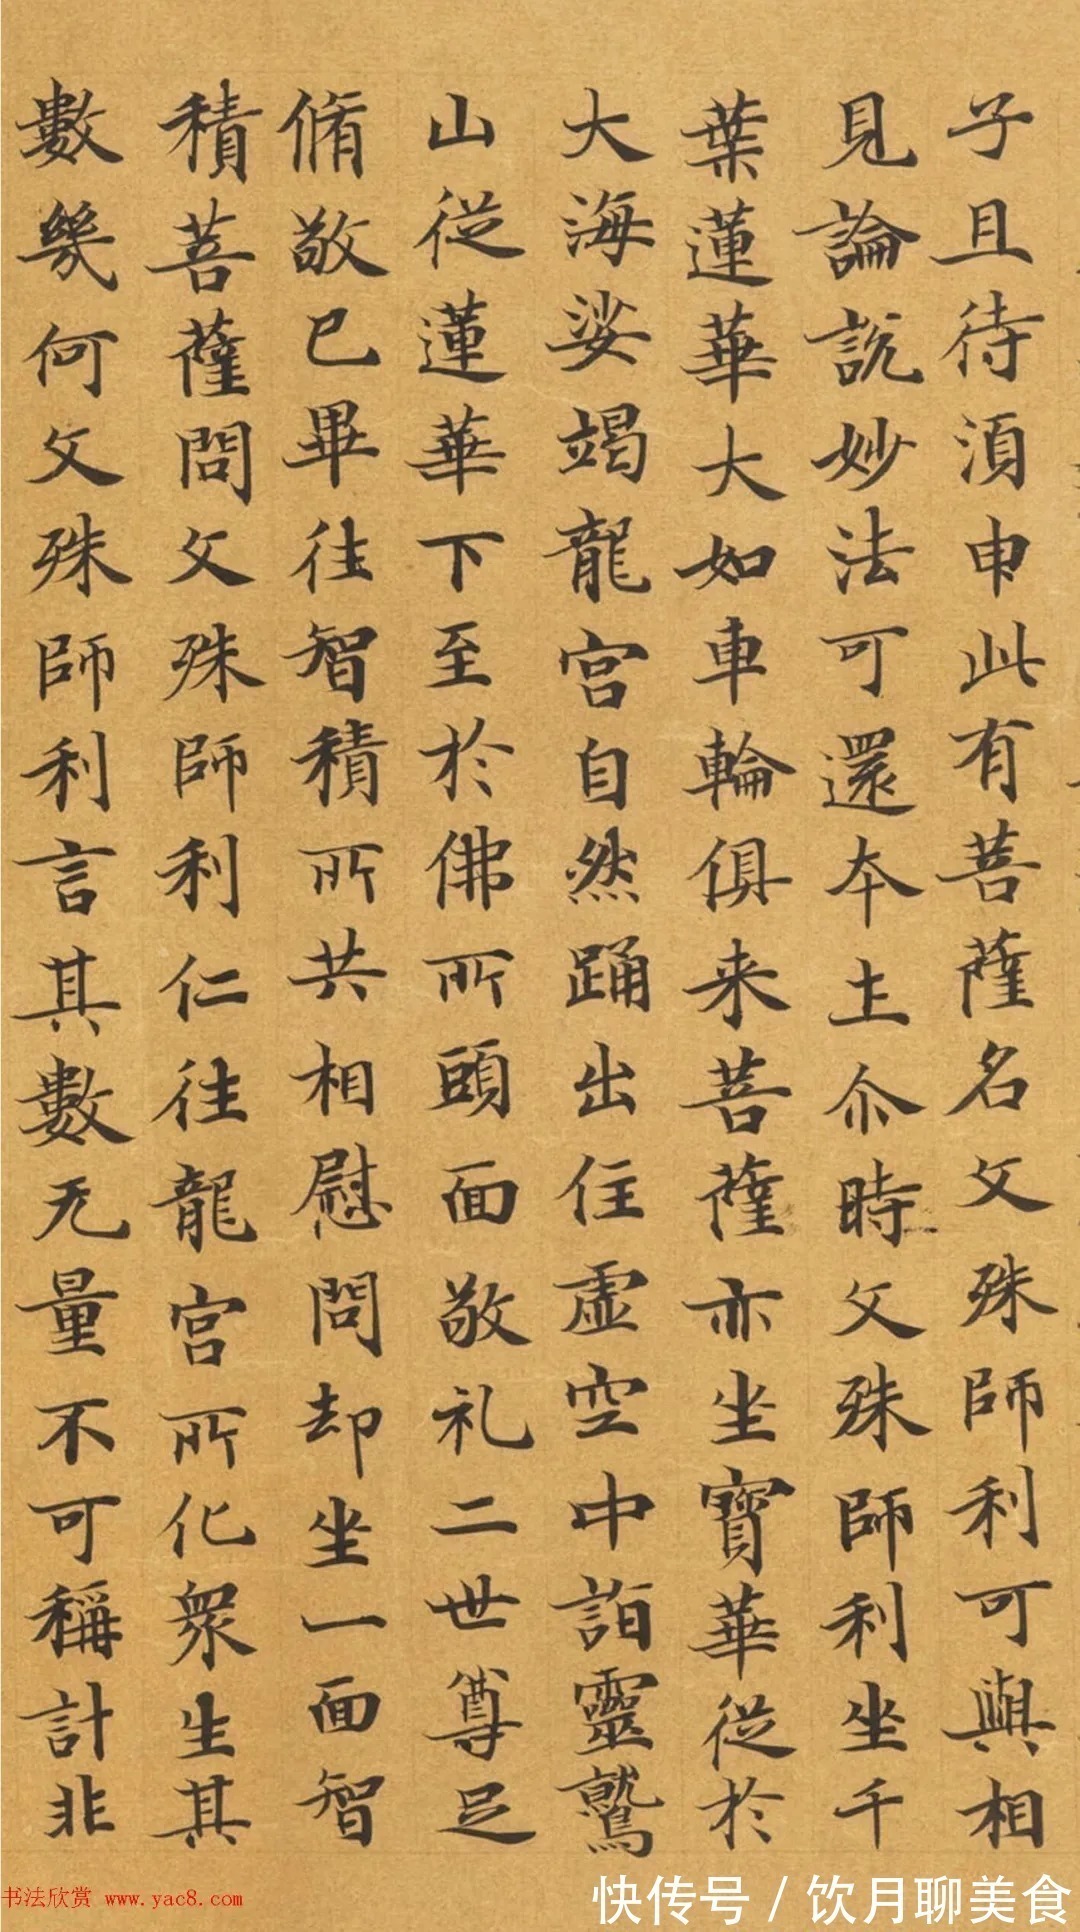 子且待須申此有菩薩名文殊師利可與相
見論說妙法可還本土尒時文殊師利坐千
葉蓮華大如車輪俱来菩薩亦坐寶華從於
大海娑竭龍宮自然踊出住虛空中詣靈鷲
山從蓮華下至於佛所頭面敬礼二世尊足
脩敬已畢往智積所共相慰問却坐一面智
積菩薩問文殊師利仁往龍宮所化衆生其
數幾何文殊師利言其數无量不可稱計非
书法欣赏 www.yac8.com
快传号 / 饮月聊美食